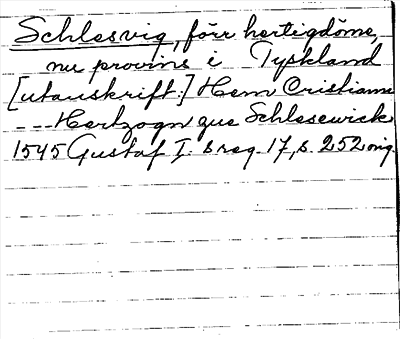 Schlesvig, förr hertigdöme,
nu provins i Tyskland
[utanskrift:] Hern Cristianne
--- Hertzogn zue Schlesewick
1545 Gustaf I: s reg. 17, s. 252 orig.